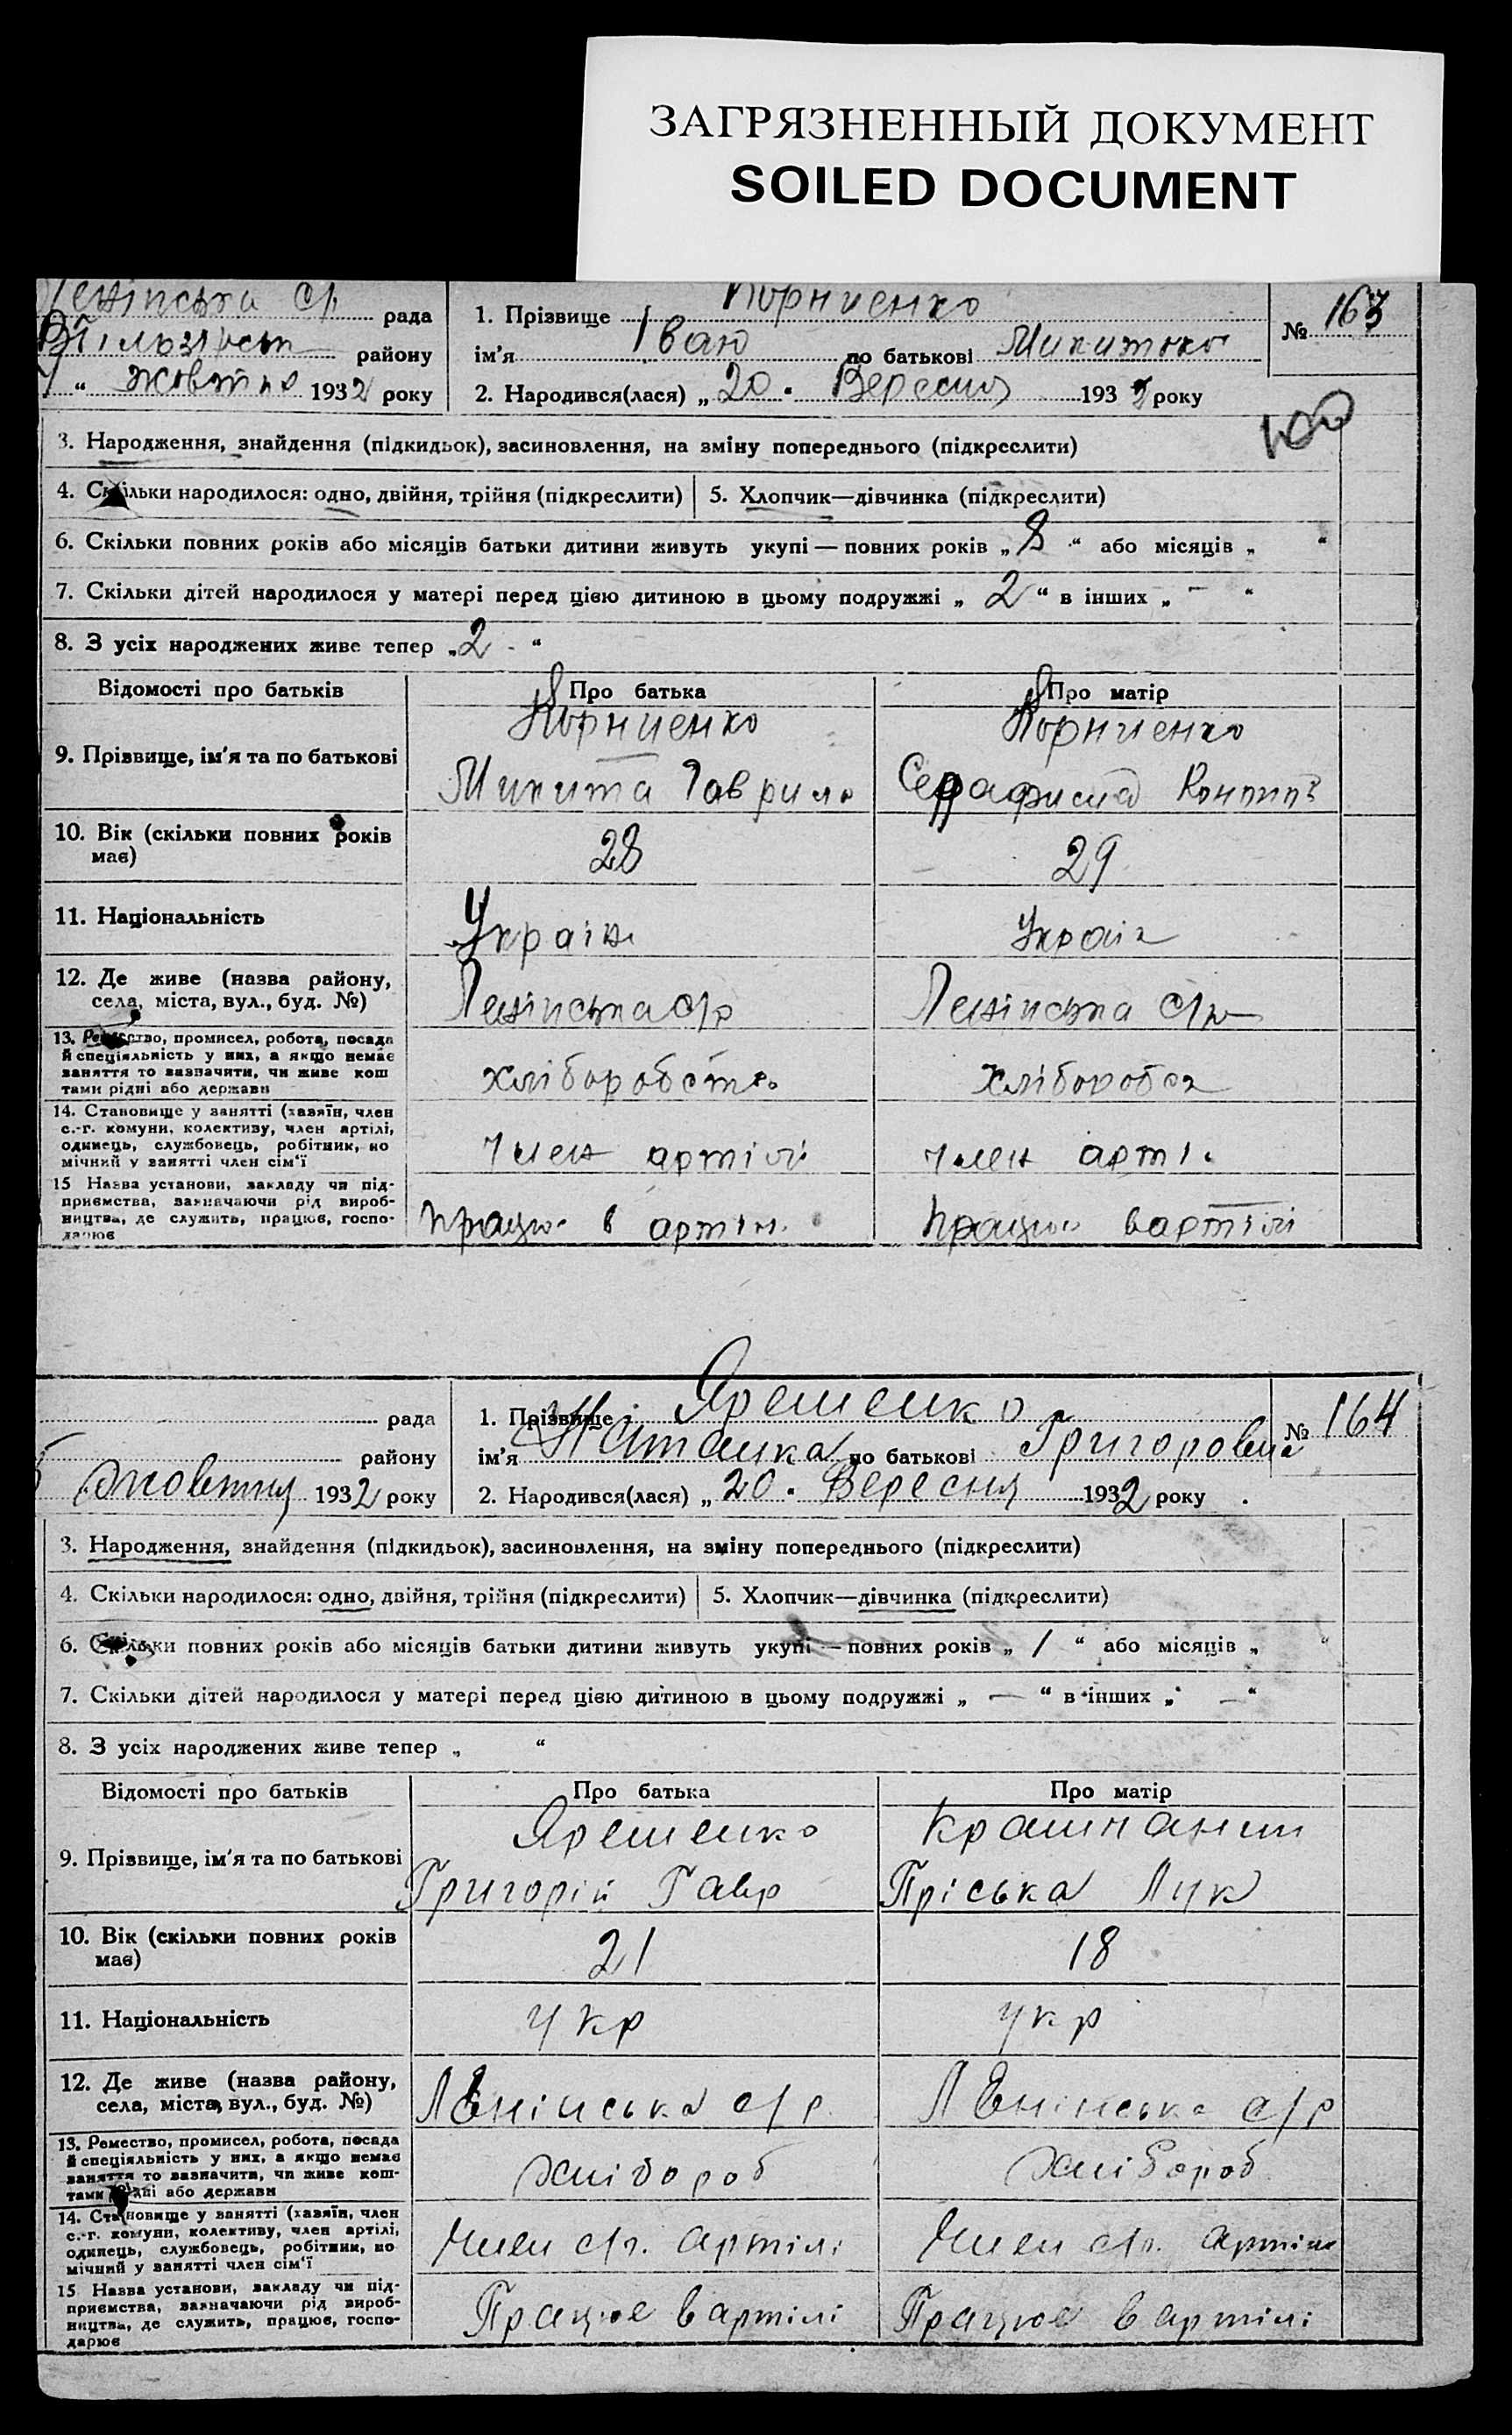 ЗАГРЯЗНЕННЫЙ ДОКУМЕНТ
SOILED DOCUMENT
Ленінська с/р рада
району
" Жовтня 1932 року
1. Прізвище Корниенко
ім'я Іван по батькові
2. Народився(лася) „ 20 " Вересня 1932 року
№ 163
100
3. Народження, знайдення (підкидьок), засиновлення, на зміну попереднього (підкреслити)
4. Скільки народилося: одно, двійня, трійня (підкреслити) 5. Хлопчик—дівчинка (підкреслити)
6. Скільки повних років або місяців батьки дитини живуть укупі — повних років „ 8 “ або місяців „ “
7. Скільки дітей народилося у матері перед цією дитиною в цьому подружжі „ 2 “ в інших „ – “
8. З усіх народжених живе тепер „ 2 - “
Відомості про батьків Про батька Про матір
Корниенко Корниенко
9. Прізвище, ім'я та по батькові
Микита Гаврило
10. Вік (скільки повних років має) 28 29
11. Національність Україн Україн
12. Де живе (назва району, села, міста, вул., буд. №) Ленінська с/р Ленінська с/р
13. Ремество, промисел, робота, посада
й спеціяльність у них, а якщо немає
заняття то зазначити, чи живе кош
тами рідні або держави
хліборобство
14. Становище у занятті (хазяїн, член
с.-г. комуни, колективу, член артілі,
одинець, службовець, робітник, по
мічний у занятті член сім'ї
член артілі член арті.
15 Назва установи, закладу чи під-
приємства, зазначаючи рід вироб-
ництва, де служить, працює, госпо-
дарює
в артіл. в артілі
рада
району
Жовтня 1932 року
1. Прізвище Ярешенко
ім'я по батькові Григоровна
2. Народився(лася) „ 20 " Вересня 1932 року
№ 164
3. Народження, знайдення (підкидьок), засиновлення, на зміну попереднього (підкреслити)
4. Скільки народилося: одно, двійня, трійня (підкреслити) 5. Хлопчик—дівчинка (підкреслити)
6. Скільки повних років або місяців батьки дитини живуть укупі — повних років „ 1 “ або місяців „ “
7. Скільки дітей народилося у матері перед цією дитиною в цьому подружжі „ — “ в інших „ — “
8. З усіх народжених живе тепер „ “
Відомості про батьків Про батька Про матір
Ярешенко
9. Прізвище, ім'я та по батькові
Григорій Гавр Пріська Лук
10. Вік (скільки повних років має) 21 18
11. Національність укр укр
12. Де живе (назва району, села, міста, вул., буд. №) Ленінська с/р Ленінська с/р
13. Ремество, промисел, робота, посада
й спеціяльність у них, а якщо немає
заняття то зазначити, чи живе кош-
тами рідні або держави
хлібороб хлібороб
14. Становище у занятті (хазяїн, член
с.-г. комуни, колективу, член артілі,
одинець, службовець, робітник, по
мічний у занятті член сім'ї
Член с/г. артілі Член с/г. артілі
15 Назва установи, закладу чи під-
приємства, зазначаючи рід вироб-
ництва, де служить, працює, госпо-
дарює
Працює в артілі Працює в артілі